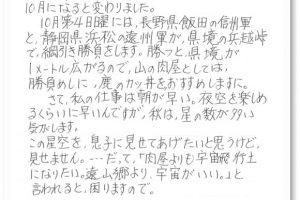 10月になると変わりました。
10月第4日曜には、長野県飯田の信州軍
と、静岡県浜松の遠州軍が、県境の兵越峠
で、綱引き勝負をします。勝つと、県境が
1メートル広がるので、山の肉屋としては、
勝負めしに、鹿のカツ丼をおすすめします。
さて、私の仕事は朝が早い。夜空を楽しめ
るくらいに早いんですが、秋は、星の数が多い
気がします。
この星空を、息子に見せてあげたいと思うけど、
見せません。…だって、「肉屋よりも宇宙飛行士
になりたい。遠山郷より、宇宙がいい。」と
言われると、困りますので。